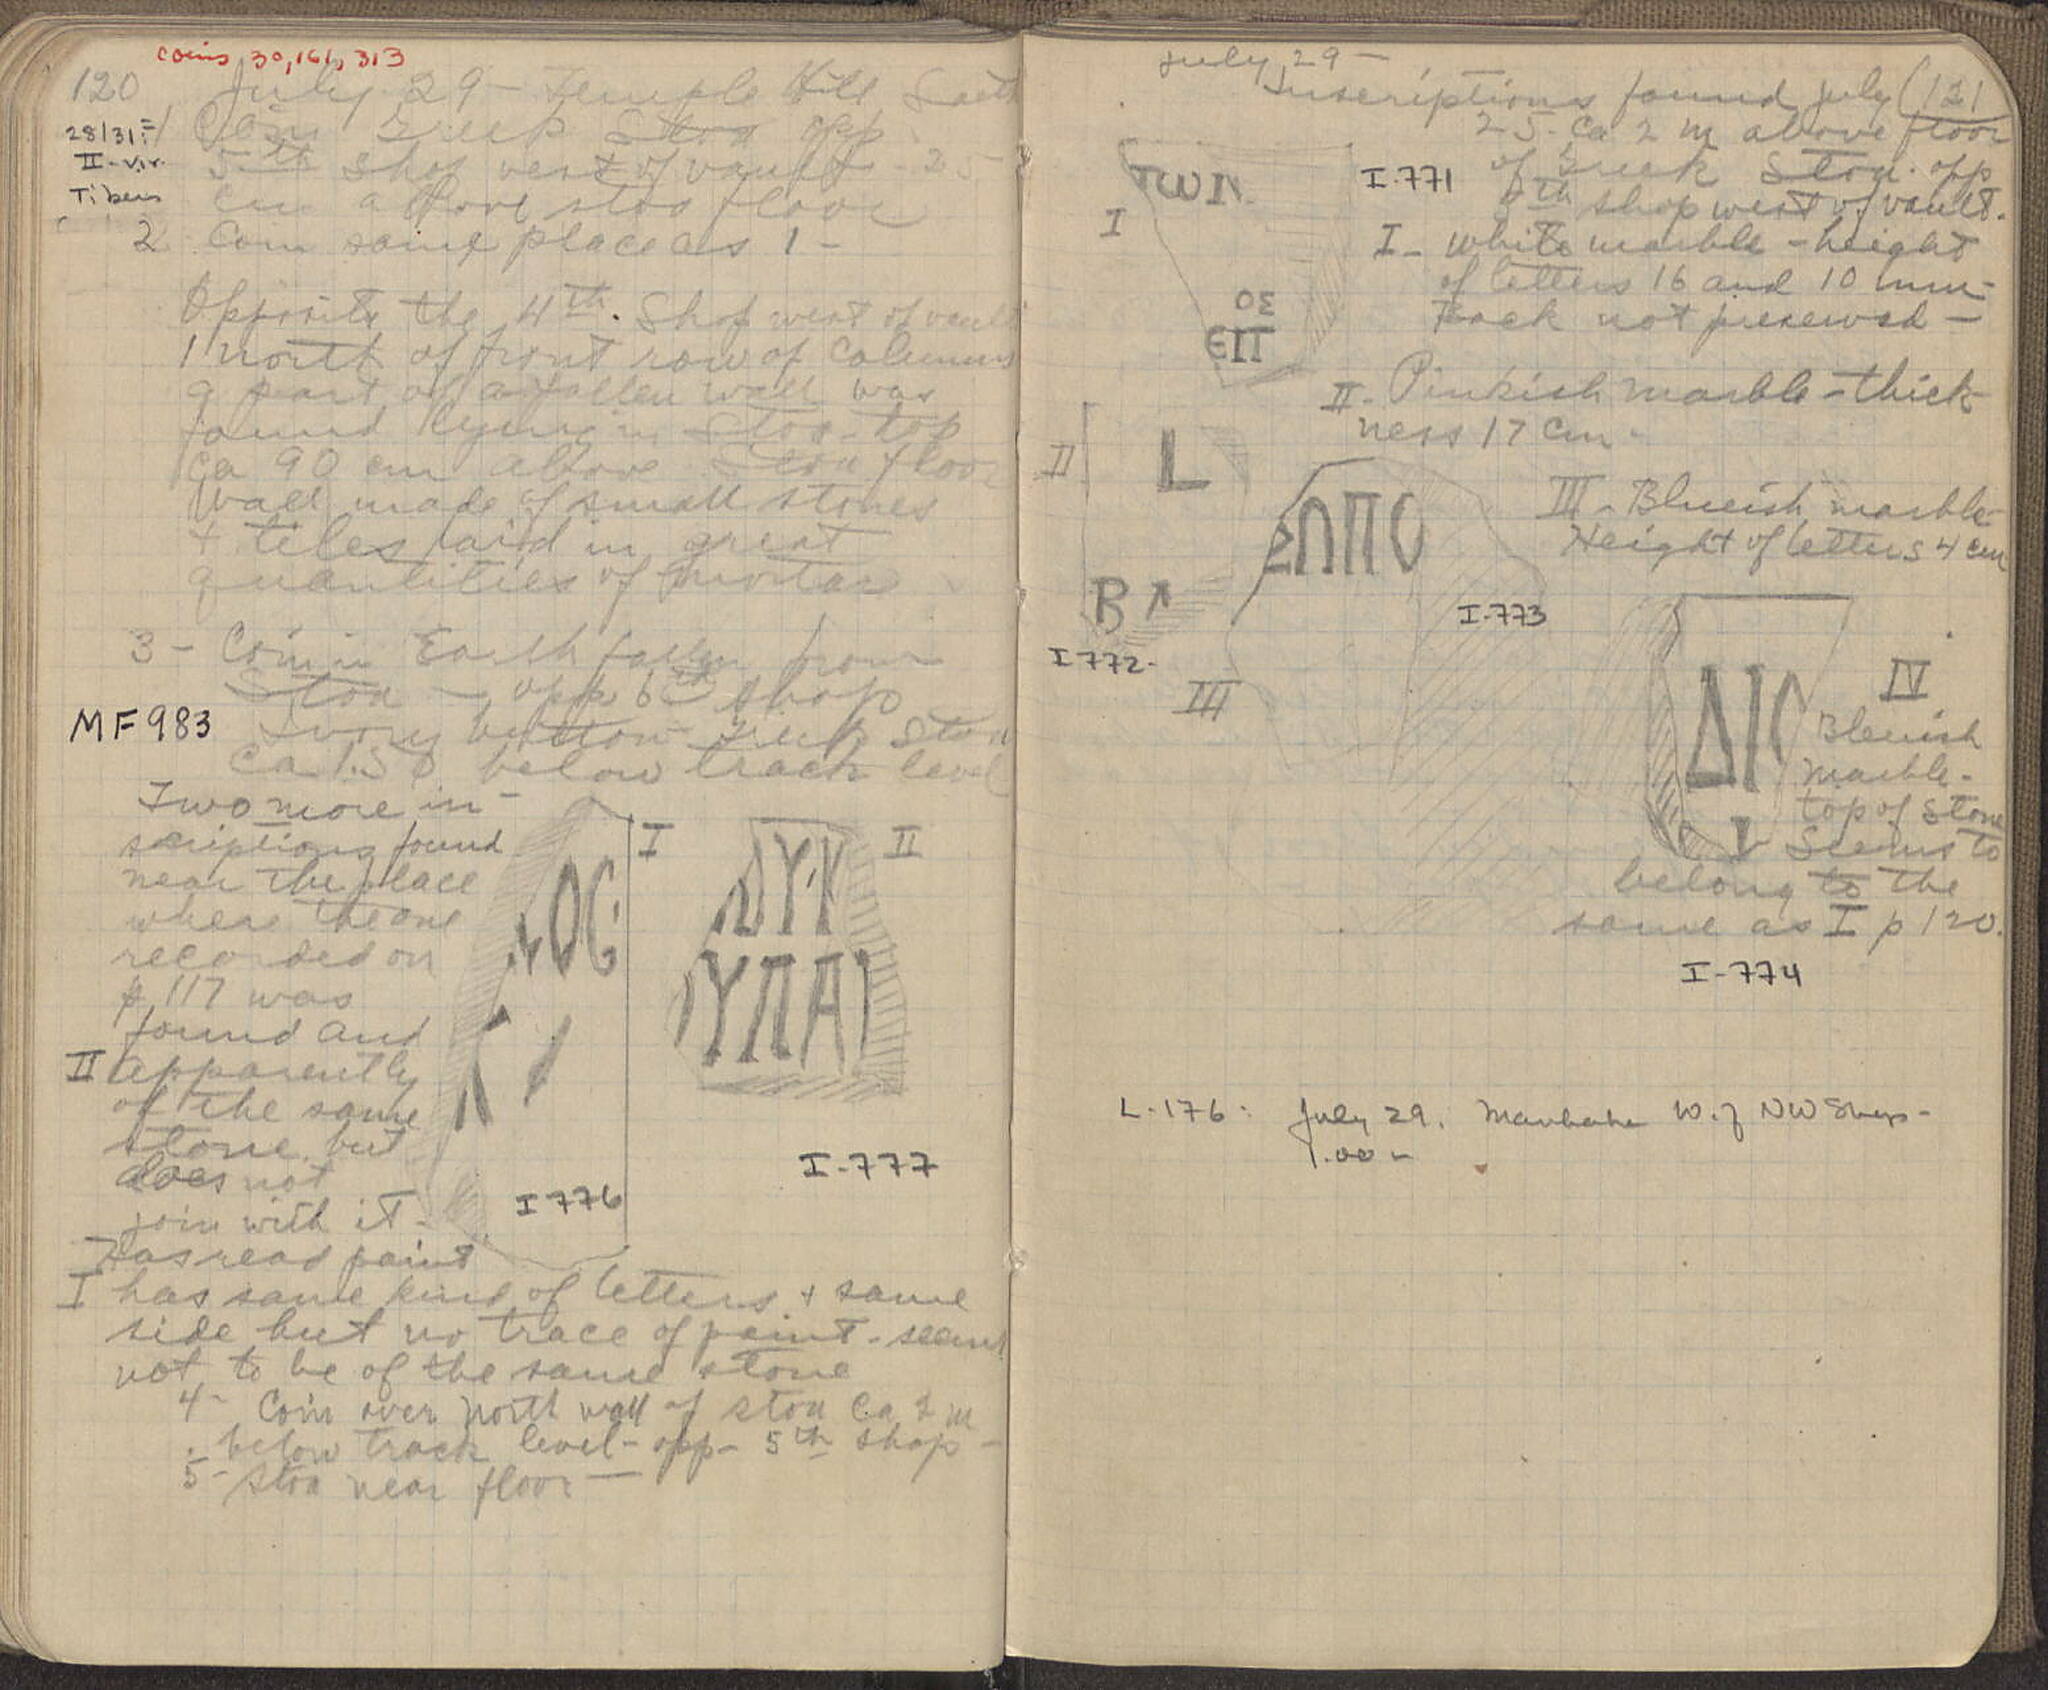 coins, 30, 161, 313
120 July 29 - Temple Hill South
28/31:= II-Vir. Tibers
1 Coin Greek Stoa opp.
5th shop west of vault - 25
cm above stoa floor
2 Coin same place as 1 -
Opposite the 4th. Shop west of vault
1 north of front row of columns
a part of a fallen wall was
found lying in Stoa - top
ca 90 cm above Stoa floor
Wall made of small stones
+ tiles laid in great
quantities of mortar
3 - Coin in Earth fallen from
Stoa - opp 6th shop
MF 983 Ivory button Greek Stoa
ca 1.50 below track level
Two more in-
scriptions found
near the place
where the one
recorded on
p 117 was
found and
II apparently
of the same
stone but
does not
join with it -
Has read paint
I
ΟC
I-776
II
ΥΚ
ΥΠΑΙ
I-777
I has same kind of letters + same
side but no trace of paint - seems
not to be of the same stone
4 - Coin over North wall of stoa ca 2 m
below track level - opp - 5th shop -
5 - Stoa near floor -
July 29 -
Inscriptions found July (121
25 - ca 2 m above floor
of Greek Stoa. opp
5th shop west of vault.
ΤωΙΝ
I
ΟΣ
ЭΙΠ
I-771
I - white marble - height
of letters 16 and 10 mm -
Back not preserved -
II - Pinkish marble - thick
ness 17 cm -
II
L
B ↗
I-772-
III - Blueish marble -
Height of letters 4 cm
ΣΩΠΟ
I-773
III
ΔΙC
IV
Blueish
marble -
top of stone
Seems to
belong to the
same as I p 120.
I-774
L-176: July 29. Manhole W. of NW Shops -
1.00 -